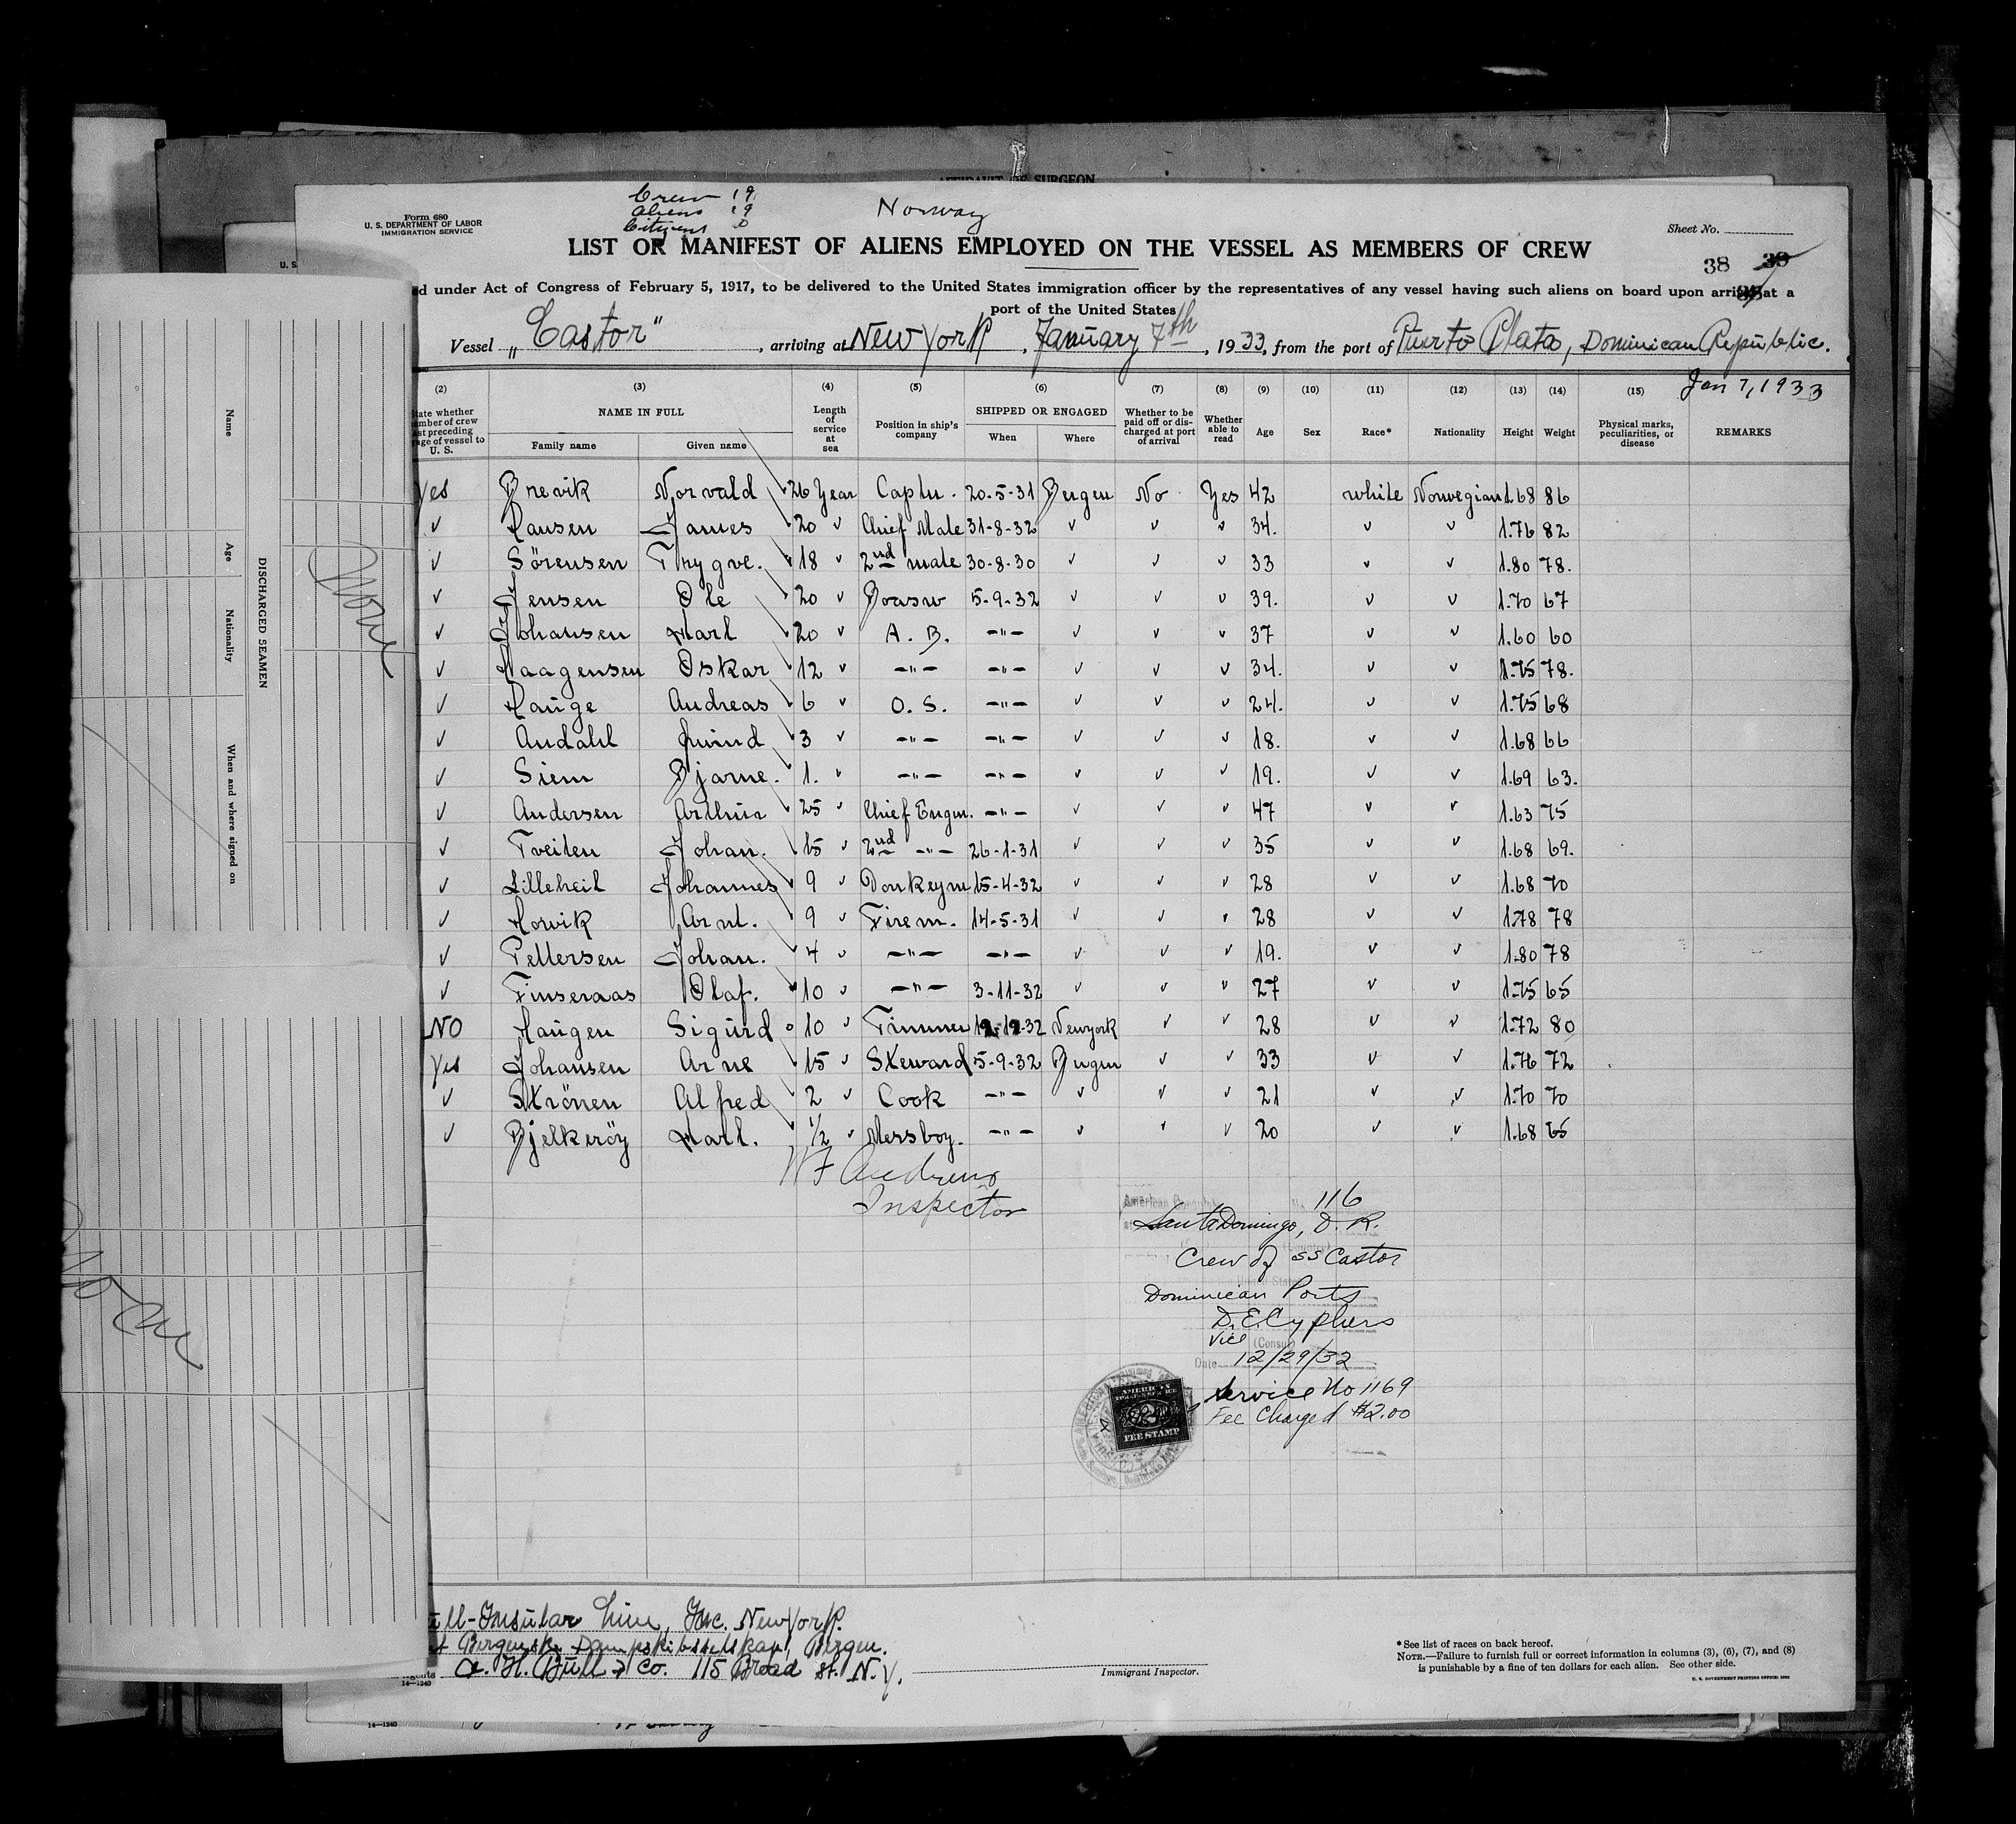 AFFIDAVIT OF SURGEON
Crew 19
Aliens 19
Citizens 0
Norway
Form 680
U. S. DEPARTMENT OF LABOR
IMMIGRATION SERVICE
Sheet No.
LIST OR MANIFEST OF ALIENS EMPLOYED ON THE VESSEL AS MEMBERS OF CREW
38
d under Act of Congress of February 5, 1917, to be delivered to the United States immigration officer by the representatives of any vessel having such aliens on board upon arrival at a
port of the United States
Vessel „Castor", arriving at New York, January 7th, 1933, from the port of Puerto Plata, Dominican Republic.
Jan 7, 1933
(2) (3) (4) (5) (6) (7) (8) (9) (10) (11) (12) (13) (14) (15)
tate whether mber of crew st preceding age of vessel to U. S. NAME IN FULL Family name Given name Length of service at sea Position in ship's company SHIPPED OR ENGAGED When Where Whether to be paid off or discharged at port of arrival Whether able to read Age Sex Race* Nationality Height Weight Physical marks, peculiarities, or disease REMARKS
Yes Brevik Norvald 26 Year Captn. 20-5-31 Bergen No Yes 42 white Norwegian 1.68 86
✓ Hansen James 20 ✓ Chief Mate 31-8-32 ✓ ✓ ✓ 34. ✓ ✓ 1.76 82
✓ Sörensen Trygve. 18 ✓ 2nd mate 30-8-30 ✓ ✓ ✓ 33 ✓ ✓ 1.80 78.
✓ Jensen Ole 20 ✓ Boasw 5-9-32 ✓ ✓ ✓ 39. ✓ ✓ 1.70 67
✓ Johansen Karl 20 ✓ A. B. -"- ✓ ✓ ✓ 37 ✓ ✓ 1.60 60
✓ Haagensen Oskar 12 ✓ -"- -"- ✓ ✓ ✓ 34. ✓ ✓ 1.75 78.
✓ Hauge Andreas 6 ✓ O. S. -"- ✓ ✓ ✓ 24. ✓ ✓ 1.75 68
✓ Andahl 3 ✓ -"- -"- ✓ ✓ ✓ 18. ✓ ✓ 1.68 66
✓ Siem Bjarne. 1. ✓ -"- -"- ✓ ✓ ✓ 19. ✓ ✓ 1.69 63.
✓ Andersen Arthur 25 ✓ Chief Engin. -"- ✓ ✓ ✓ 47 ✓ ✓ 1.63 75
✓ Tveiten Johan. 15 ✓ 2nd -"- 26-1-31 ✓ ✓ ✓ 35 ✓ ✓ 1.68 69.
✓ Lilleheil Johannes 9 ✓ Donkeym 15-4-32 ✓ ✓ ✓ 28 ✓ ✓ 1.68 70
✓ Hovik Arnt. 9 ✓ Firem. 14-5-31 ✓ ✓ ✓ 28 ✓ ✓ 1.78 78
✓ Pettersen Johan. 4 ✓ -"- -"- ✓ ✓ ✓ 19. ✓ ✓ 1.80 78
✓ Finseraas Olaf. 10 ✓ -"- 3-11-32 ✓ ✓ ✓ 27 ✓ ✓ 1.75 65
NO Haugen Sigurd 10 ✓ Trimmer 12-12-32 Newyork ✓ ✓ 28 ✓ ✓ 1.72 80
Yes Johansen Arne 15 ✓ Steward 5-9-32 Bergen ✓ ✓ 33 ✓ ✓ 1.76 72
✓ Strönen Alfred 2 ✓ Cook -"- ✓ ✓ ✓ 21 ✓ ✓ 1.70 70
✓ Bjelkeröy Karl. 1/2 ✓ Messboy. -"- ✓ ✓ ✓ 20 ✓ ✓ 1.68 65
W F Andrews
Inspector
116
Santo Domingo, D. R.
Crew of SS Castor
Dominican Ports
D. E. Cyphers
Vice (Consul)
Date 12/29/32
Service No 1169
Fee Charged $2.00
AMERICAN
FEE STAMP
ll-Insular Line, Inc. New York.
Bergenske Dampskibsselskap, Bergen.
A. H. Bull & Co. 115 Broad St. N. Y.
14-1240
Immigrant Inspector.
*See list of races on back hereof.
NOTE.—Failure to furnish full or correct information in columns (3), (6), (7), and (8)
is punishable by a fine of ten dollars for each alien. See other side.
U. S. GOVERNMENT PRINTING OFFICE
14-1240
DISCHARGED SEAMEN
Name
Age
Nationality
When and where signed on
None
None